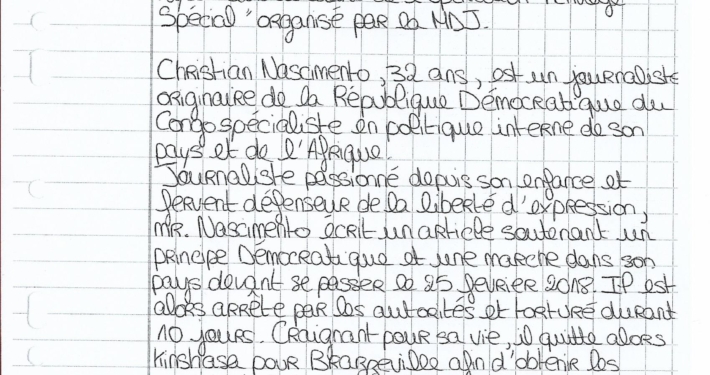 Spécial" organisé par la MDJ.
Christian Nascimento, 32 ans, est un journaliste
originaire de la République Démocratique du
Congo spécialiste en politique interne de son
pays et de l'Afrique.
Journaliste passionné depuis son enfance et
fervent défenseur de la liberté d'expression,
MR. Nascimento écrit un article soutenant un
principe Démocratique et une marche dans son
pays devant se passer le 25 fevrier 2018. Il est
alors arrêté par les autorités et torturé durant
10 jours. Craignant pour sa vie, il quitte alors
Kinshasa pour Brazzeville afin d'obtenir les